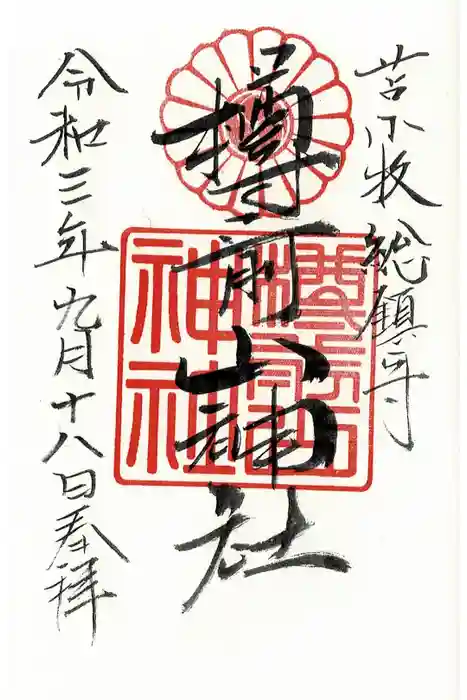 苫小牧総鎮守
樽前山神社
令和三年九月十八日奉拝
樽前山
神社